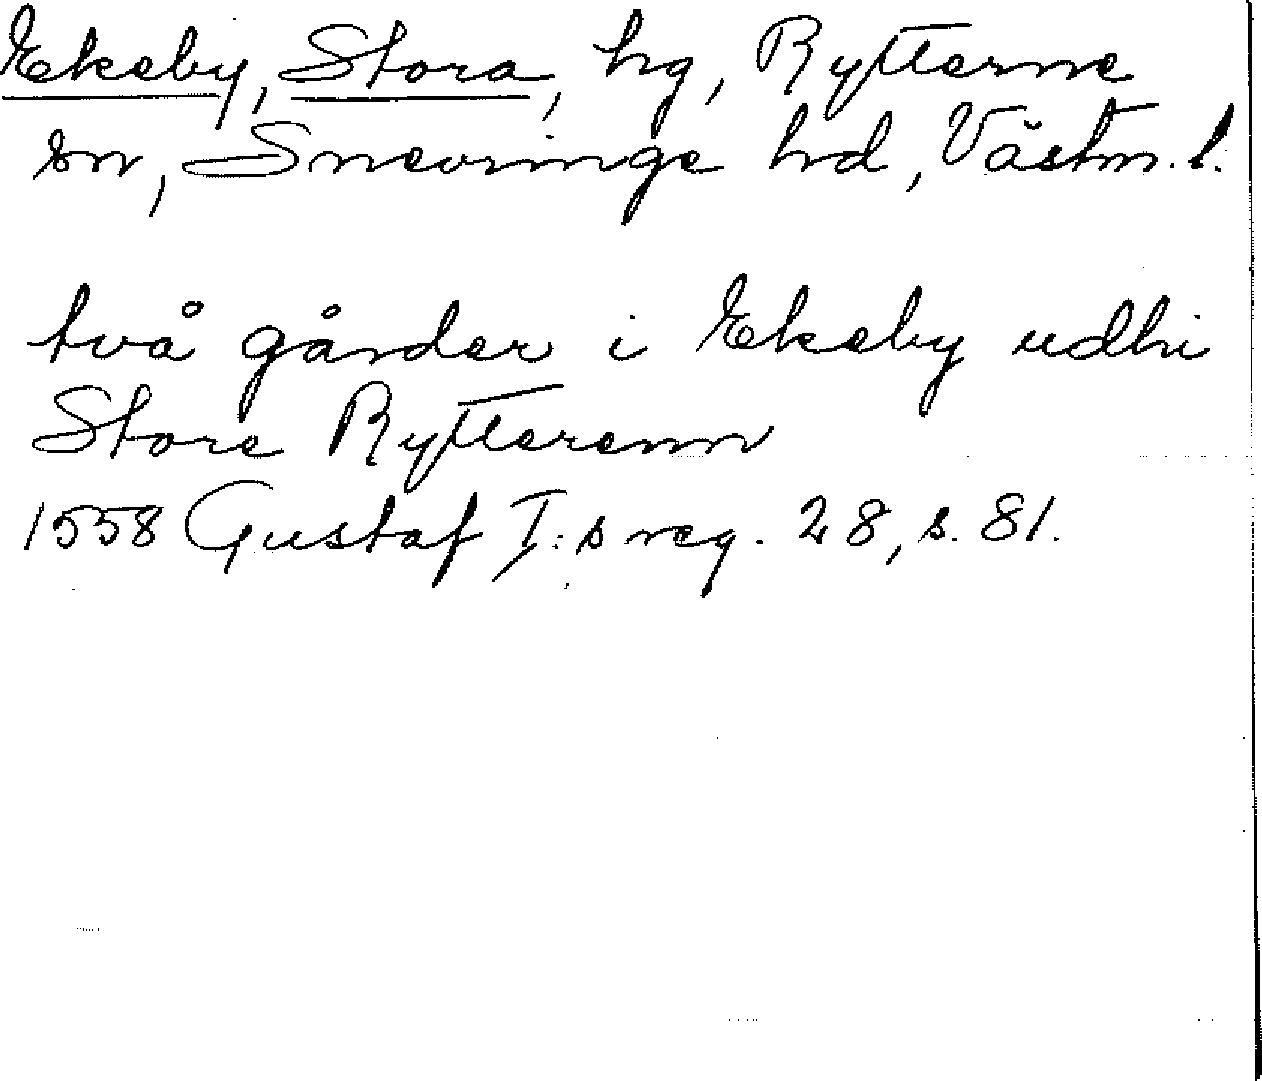 Ekeby, Stora, hg, Rytterne
sn, Snevringe hd, Västm. l.
två gårder i Ekeby udhi
Store Rytterenn
1558 Gustaf I:s reg. 28, s. 81.